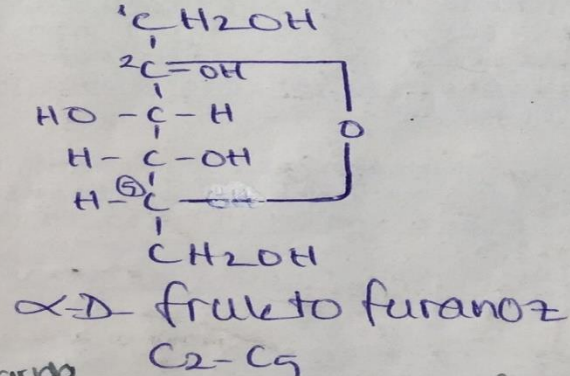 ¹CH2OH
²C-OH
HO-C-H
O
H-C-OH
H-⑤C
CH2OH
α-D-frukto furanoz
C2-C5